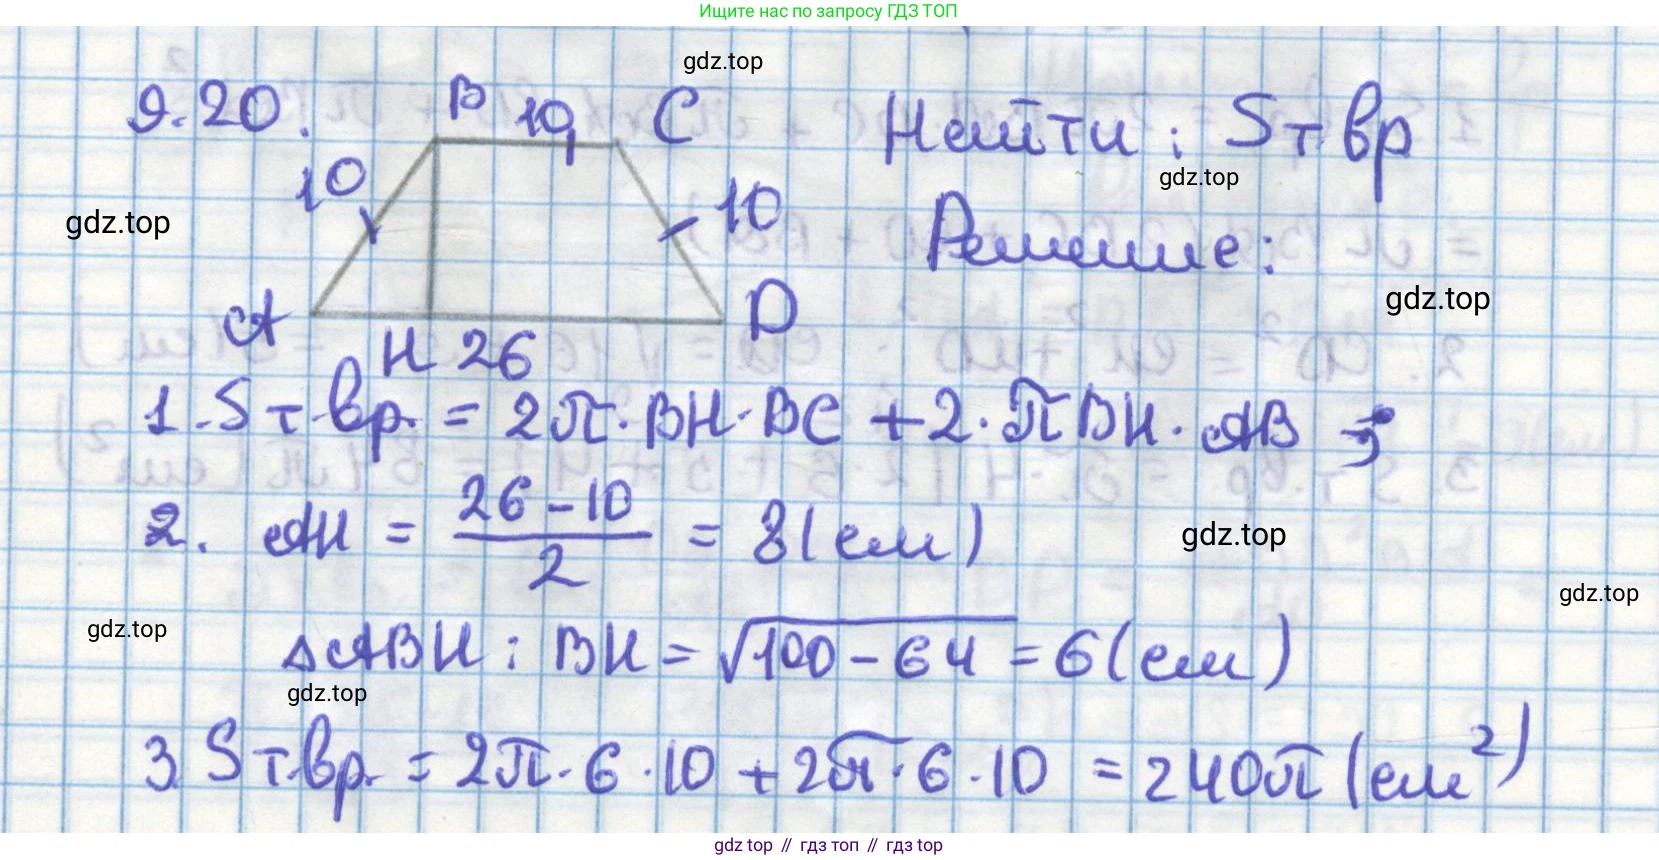 Ищите нас по запросу ГДЗ ТОП
gdz.top
9.20.
B 10 C
Найти: Sт вр
10
gdz.top
gdz.top
10
Решение:
gdz.top
A
H 26
D
1. Sт.вр. = 2π·BH·BC + 2·πBH·AB ;
2. AH = 26-10 / 2 = 8(см)
gdz.top
gdz.top
gdz.top
△ABH: BH = √100-64 = 6(см)
gdz.top
3. Sт.вр. = 2π·6·10 + 2π·6·10 = 240π(см²)
gdz top // гдз топ // гдз top